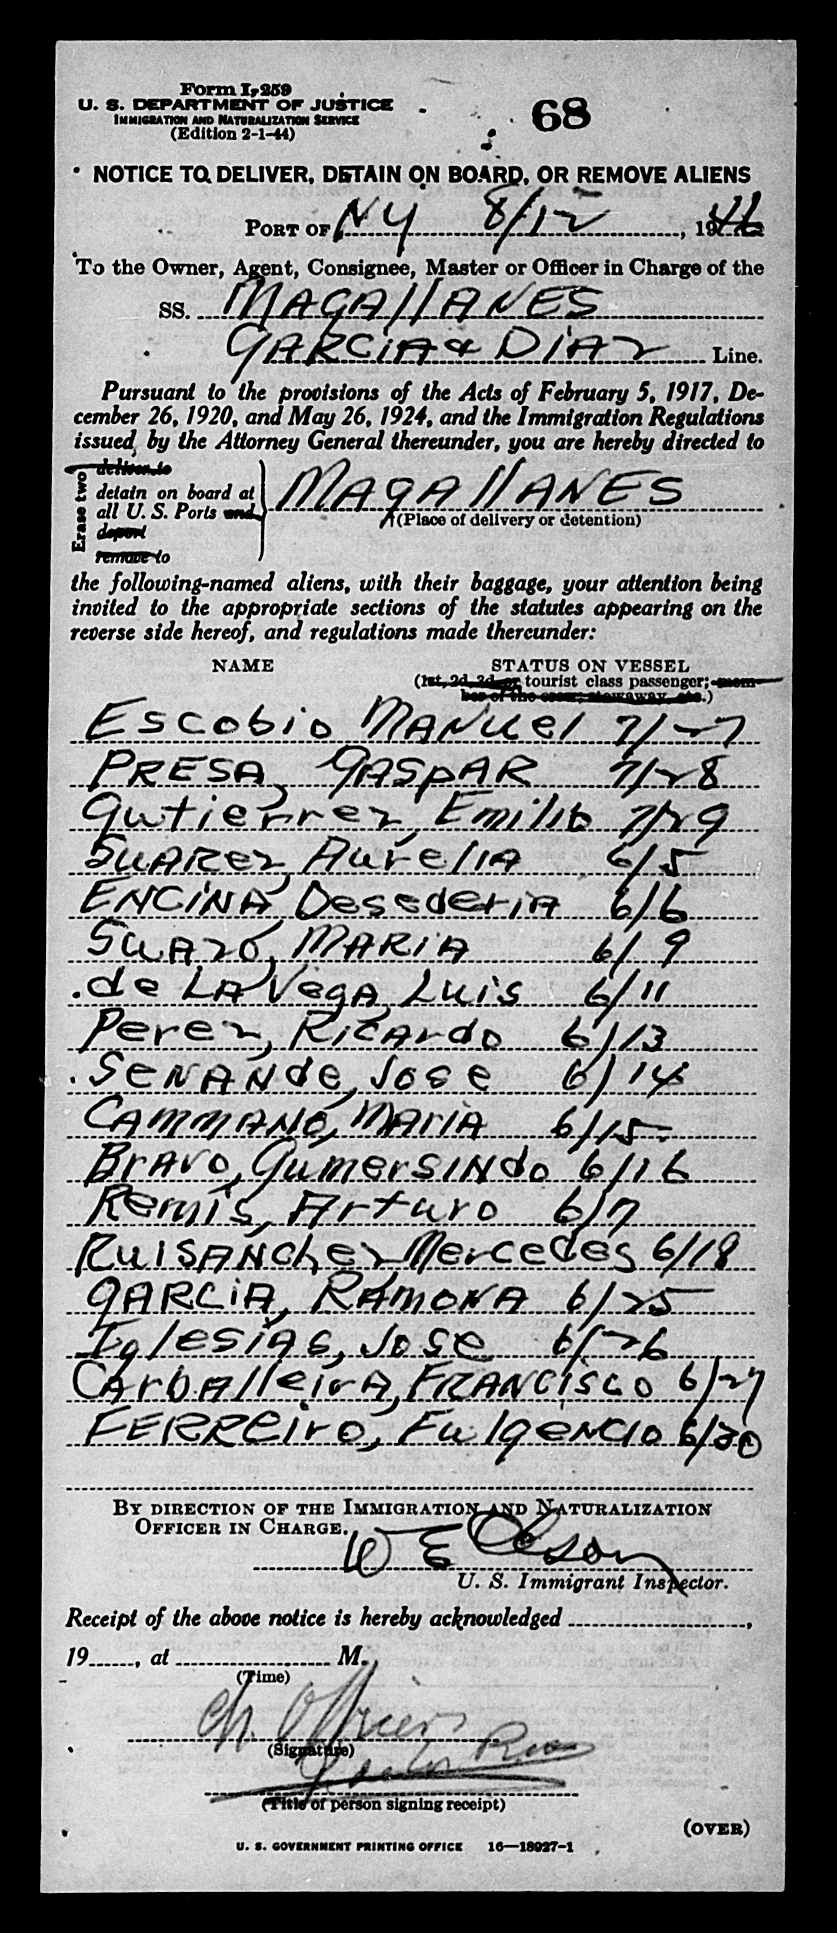 Form I-259
U. S. DEPARTMENT OF JUSTICE
IMMIGRATION AND NATURALIZATION SERVICE
(Edition 2-1-44)
68
NOTICE TO DELIVER, DETAIN ON BOARD, OR REMOVE ALIENS
PORT OF NY 8/12, 1946
To the Owner, Agent, Consignee, Master or Officer in Charge of the
SS. MAGAllANES
GARCIA & DIAZ Line.
Pursuant to the provisions of the Acts of February 5, 1917, De-
cember 26, 1920, and May 26, 1924, and the Immigration Regulations
issued by the Attorney General thereunder, you are hereby directed to
Erase two
deliver to
detain on board at
all U. S. Ports and
deport
remove to
MAGAllANES
(Place of delivery or detention)
the following-named aliens, with their baggage, your attention being
invited to the appropriate sections of the statutes appearing on the
reverse side hereof, and regulations made thereunder:
NAME STATUS ON VESSEL
(1st, 2d, 3d, or tourist class passenger; mem-
ber of the crew; stowaway, etc.)
Escobio MANuel 7/27
PRESA, GASpAR 7/28
Gutierrez, Emilio 7/29
SuARez, AurelIA 6/5
ENCiNA, DesederiA 6/6
SuAzo, MARiA 6/9
de LA Vega, Luis 6/11
Perez, RicArdo 6/13
SeNANde, Jose 6/14
CAmmANO, MAriA 6/15
BrAvo, GumersINdo 6/16
Remis, Arturo 6/7
RuiSANchez Mercedes 6/18
GARCiA, RAmoNA 6/25
IglesiAs, Jose 6/26
CArbAlleirA, FRANCisco 6/27
FERREiro, FulgeNcio 6/30
BY DIRECTION OF THE IMMIGRATION AND NATURALIZATION
OFFICER IN CHARGE.
W E Olson
U. S. Immigrant Inspector.
Receipt of the above notice is hereby acknowledged ,
19 , at M.
(Time)
Ch. Officer
(Signature)
(Title of person signing receipt)
(OVER)
U. S. GOVERNMENT PRINTING OFFICE 16—18927-1